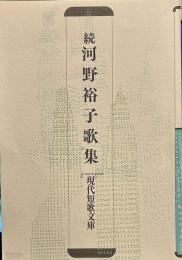 続 河野裕子歌集
現代短歌文庫